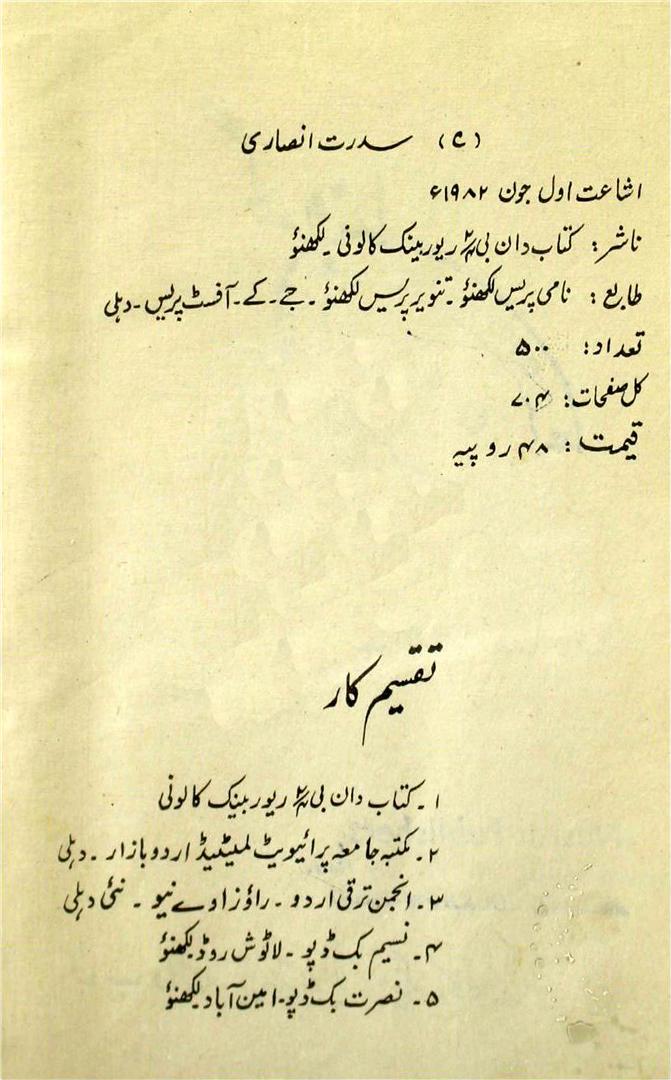 (ج) سدرت انصاری
اشاعت اول جون ۱۹۸۲ء
ناشر: کتاب دان بی ۲/۴ ریور بینک کالونی ۔ لکھنؤ
طابع: نامی پریس لکھنؤ ۔ تنویر پریس لکھنؤ ۔ جے ۔ کے ۔ آفسٹ پریس ۔ دہلی
تعداد: ۵۰۰
کل صفحات: ۷۰۴
قیمت: ۴۸ روپیہ
تقسیم کار
۱ ۔ کتاب دان بی ۲/۴ ریور بینک کالونی
۲ ۔ مکتبہ جامعہ پرائیویٹ لمیٹیڈ اردو بازار ۔ دہلی
۳ ۔ انجمن ترقی اردو ۔ راؤز اوے نیو ۔ نئی دہلی
۴ ۔ نسیم بک ڈپو ۔ لاٹوش روڈ لکھنؤ
۵ ۔ نصرت بک ڈپو ۔ امین آباد لکھنؤ